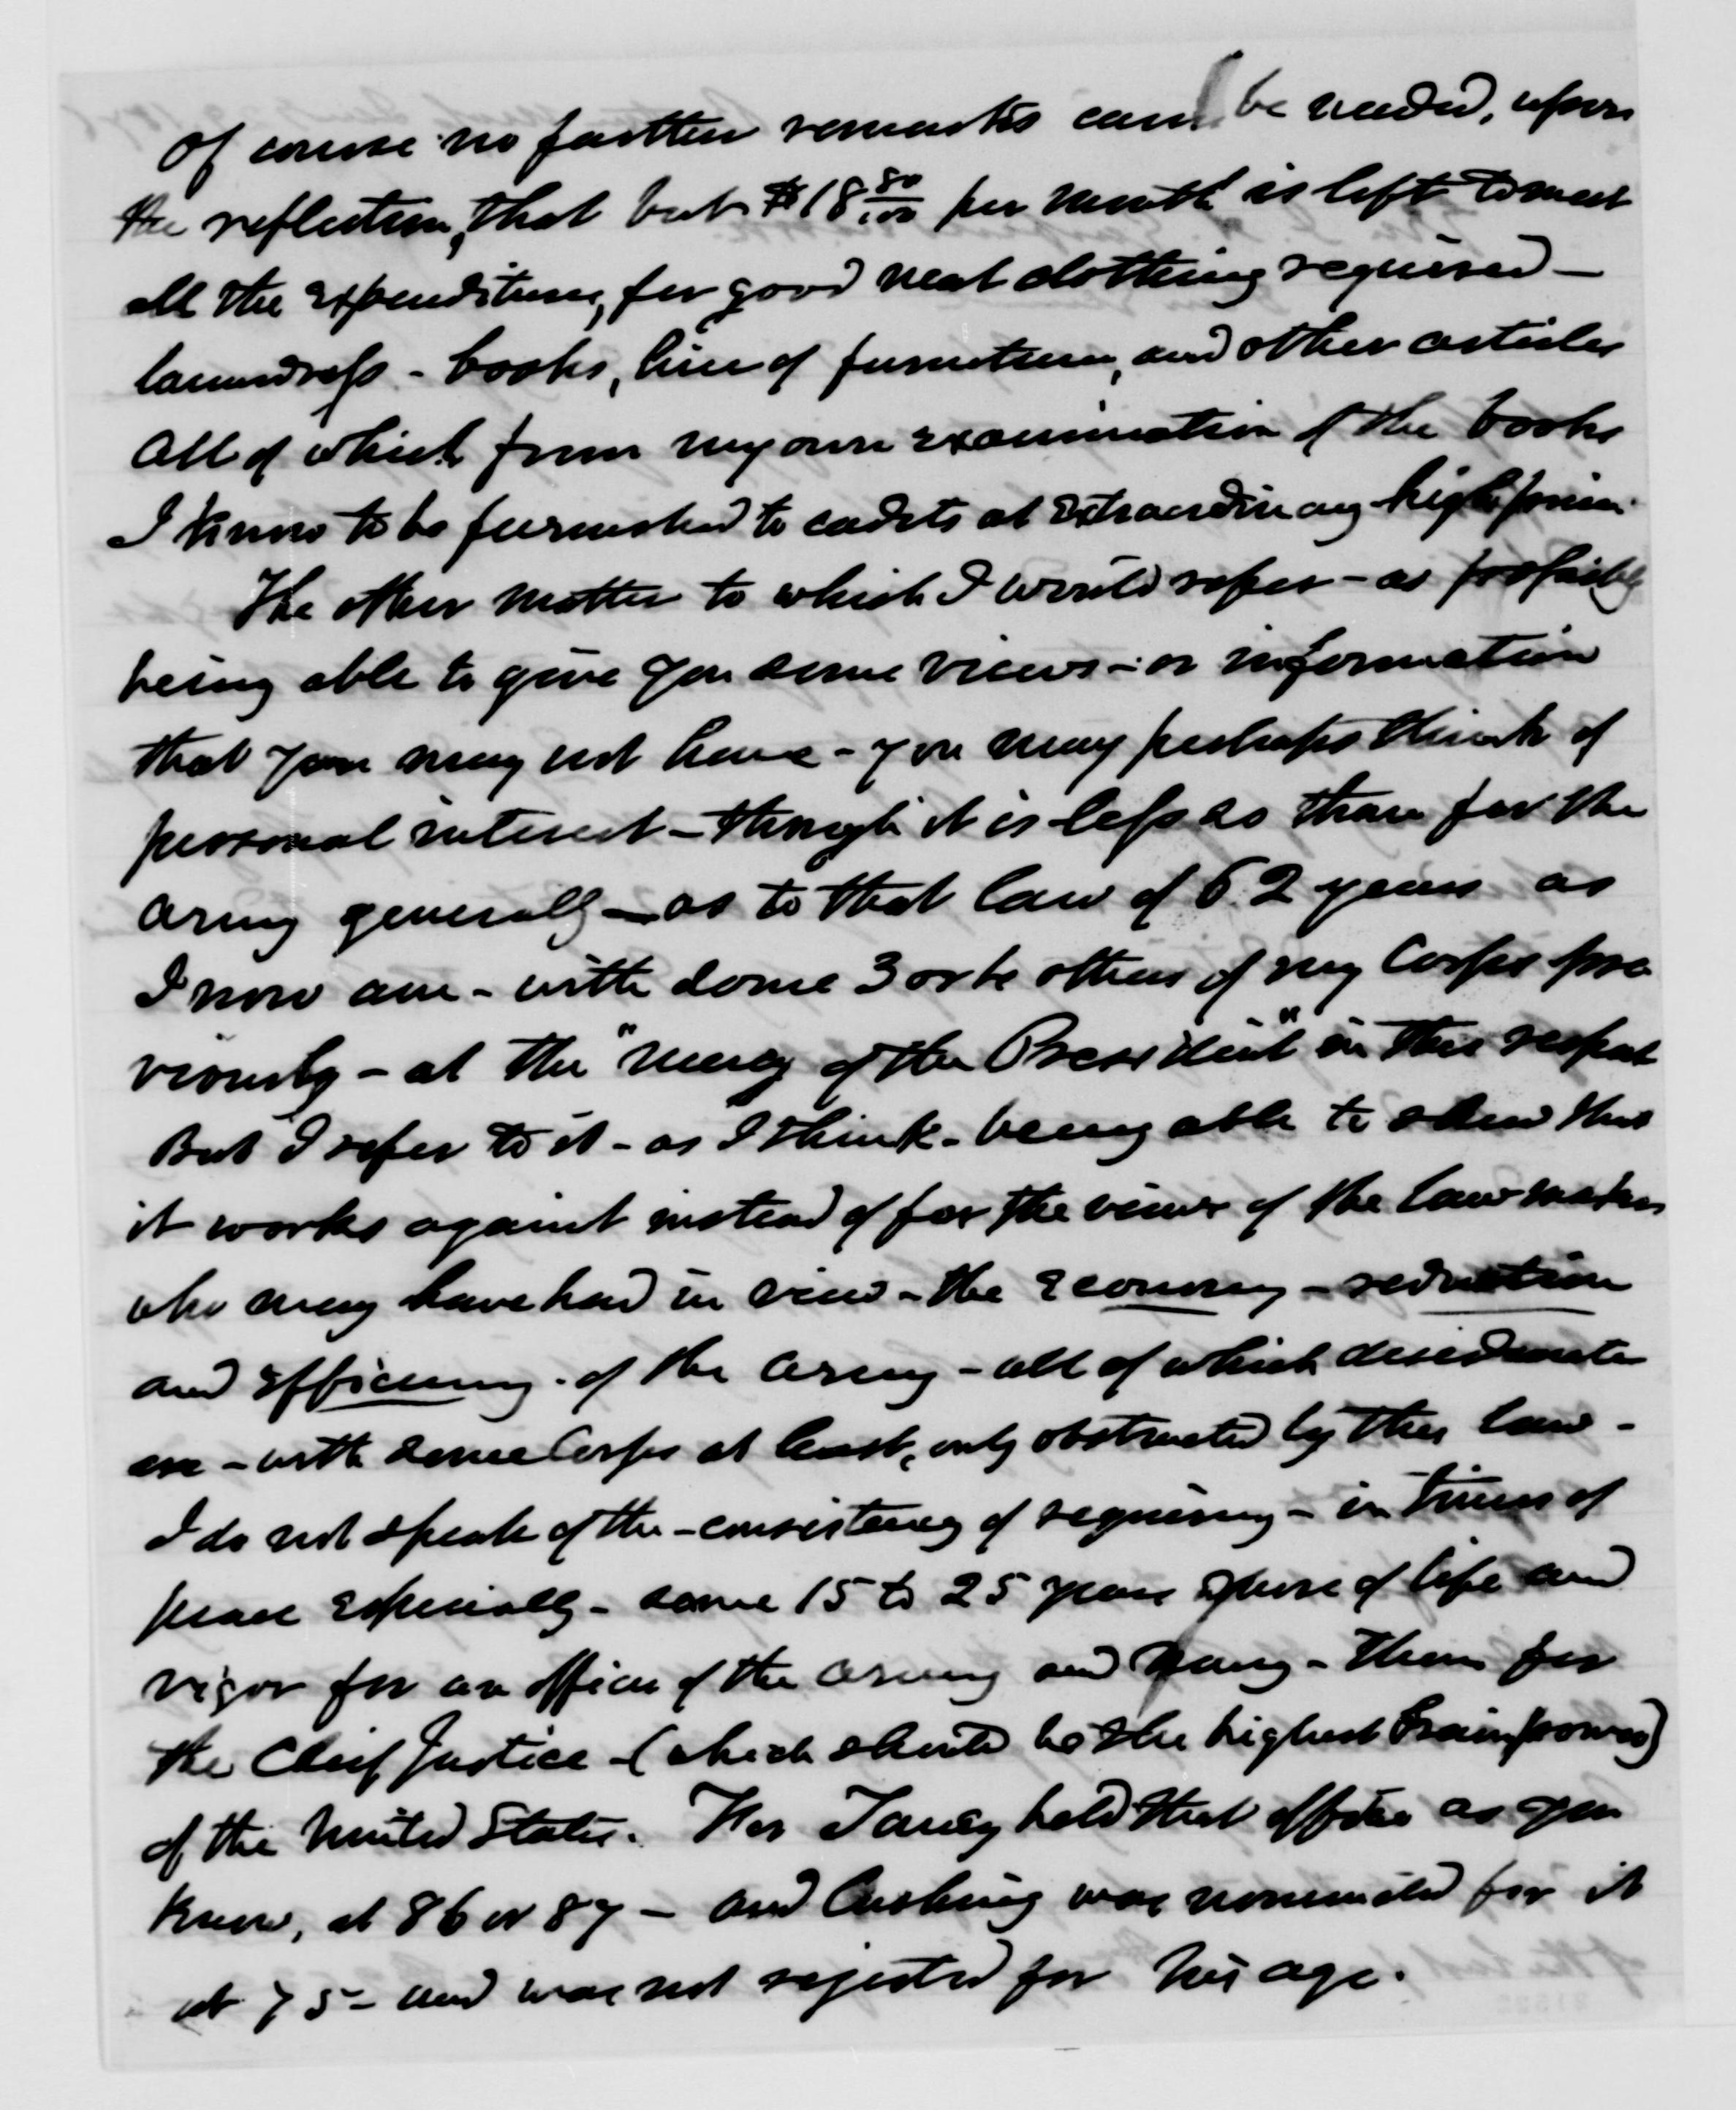 Of course no farther remarks can be needed, upon
the reflection, that but $18 80/100 per month is left to meet
all the expenditures, for good neat clothing required —
laundress - books, hire of furniture, and other articles
all of which from my own examination of the books
I know to be furnished to cadets at extraordinary high prices.
The other matter to which I would refer - as possibly
being able to give you some views - or information
that you may not have - you may perhaps think of
personal interest - though it is less so than for the
army generally - as to that law of 62 years as
I now am - with some 3 or 4 others of my Corps pre
viously - at the "mercy of the President" in this respect
But I refer to it - as I think - being able to shew that
it works against instead of for the views of the law makers
who may have had in view - the economy - reduction
and efficiency - of the army - all of which desiderata
are - with some Corps at least, only obstructed by this law -
I do not speak of the - consistency of requiring - in times of
peace especially - some 15 to 25 years more of life and
vigor for an officer of the army and Navy - than for
the Chief Justice - (which should be the highest brain power)
of the United States. For Taney held that office as you
know, at 86 or 87 - and Cushing was nominated for it
at 75 - and was not rejected for his age.